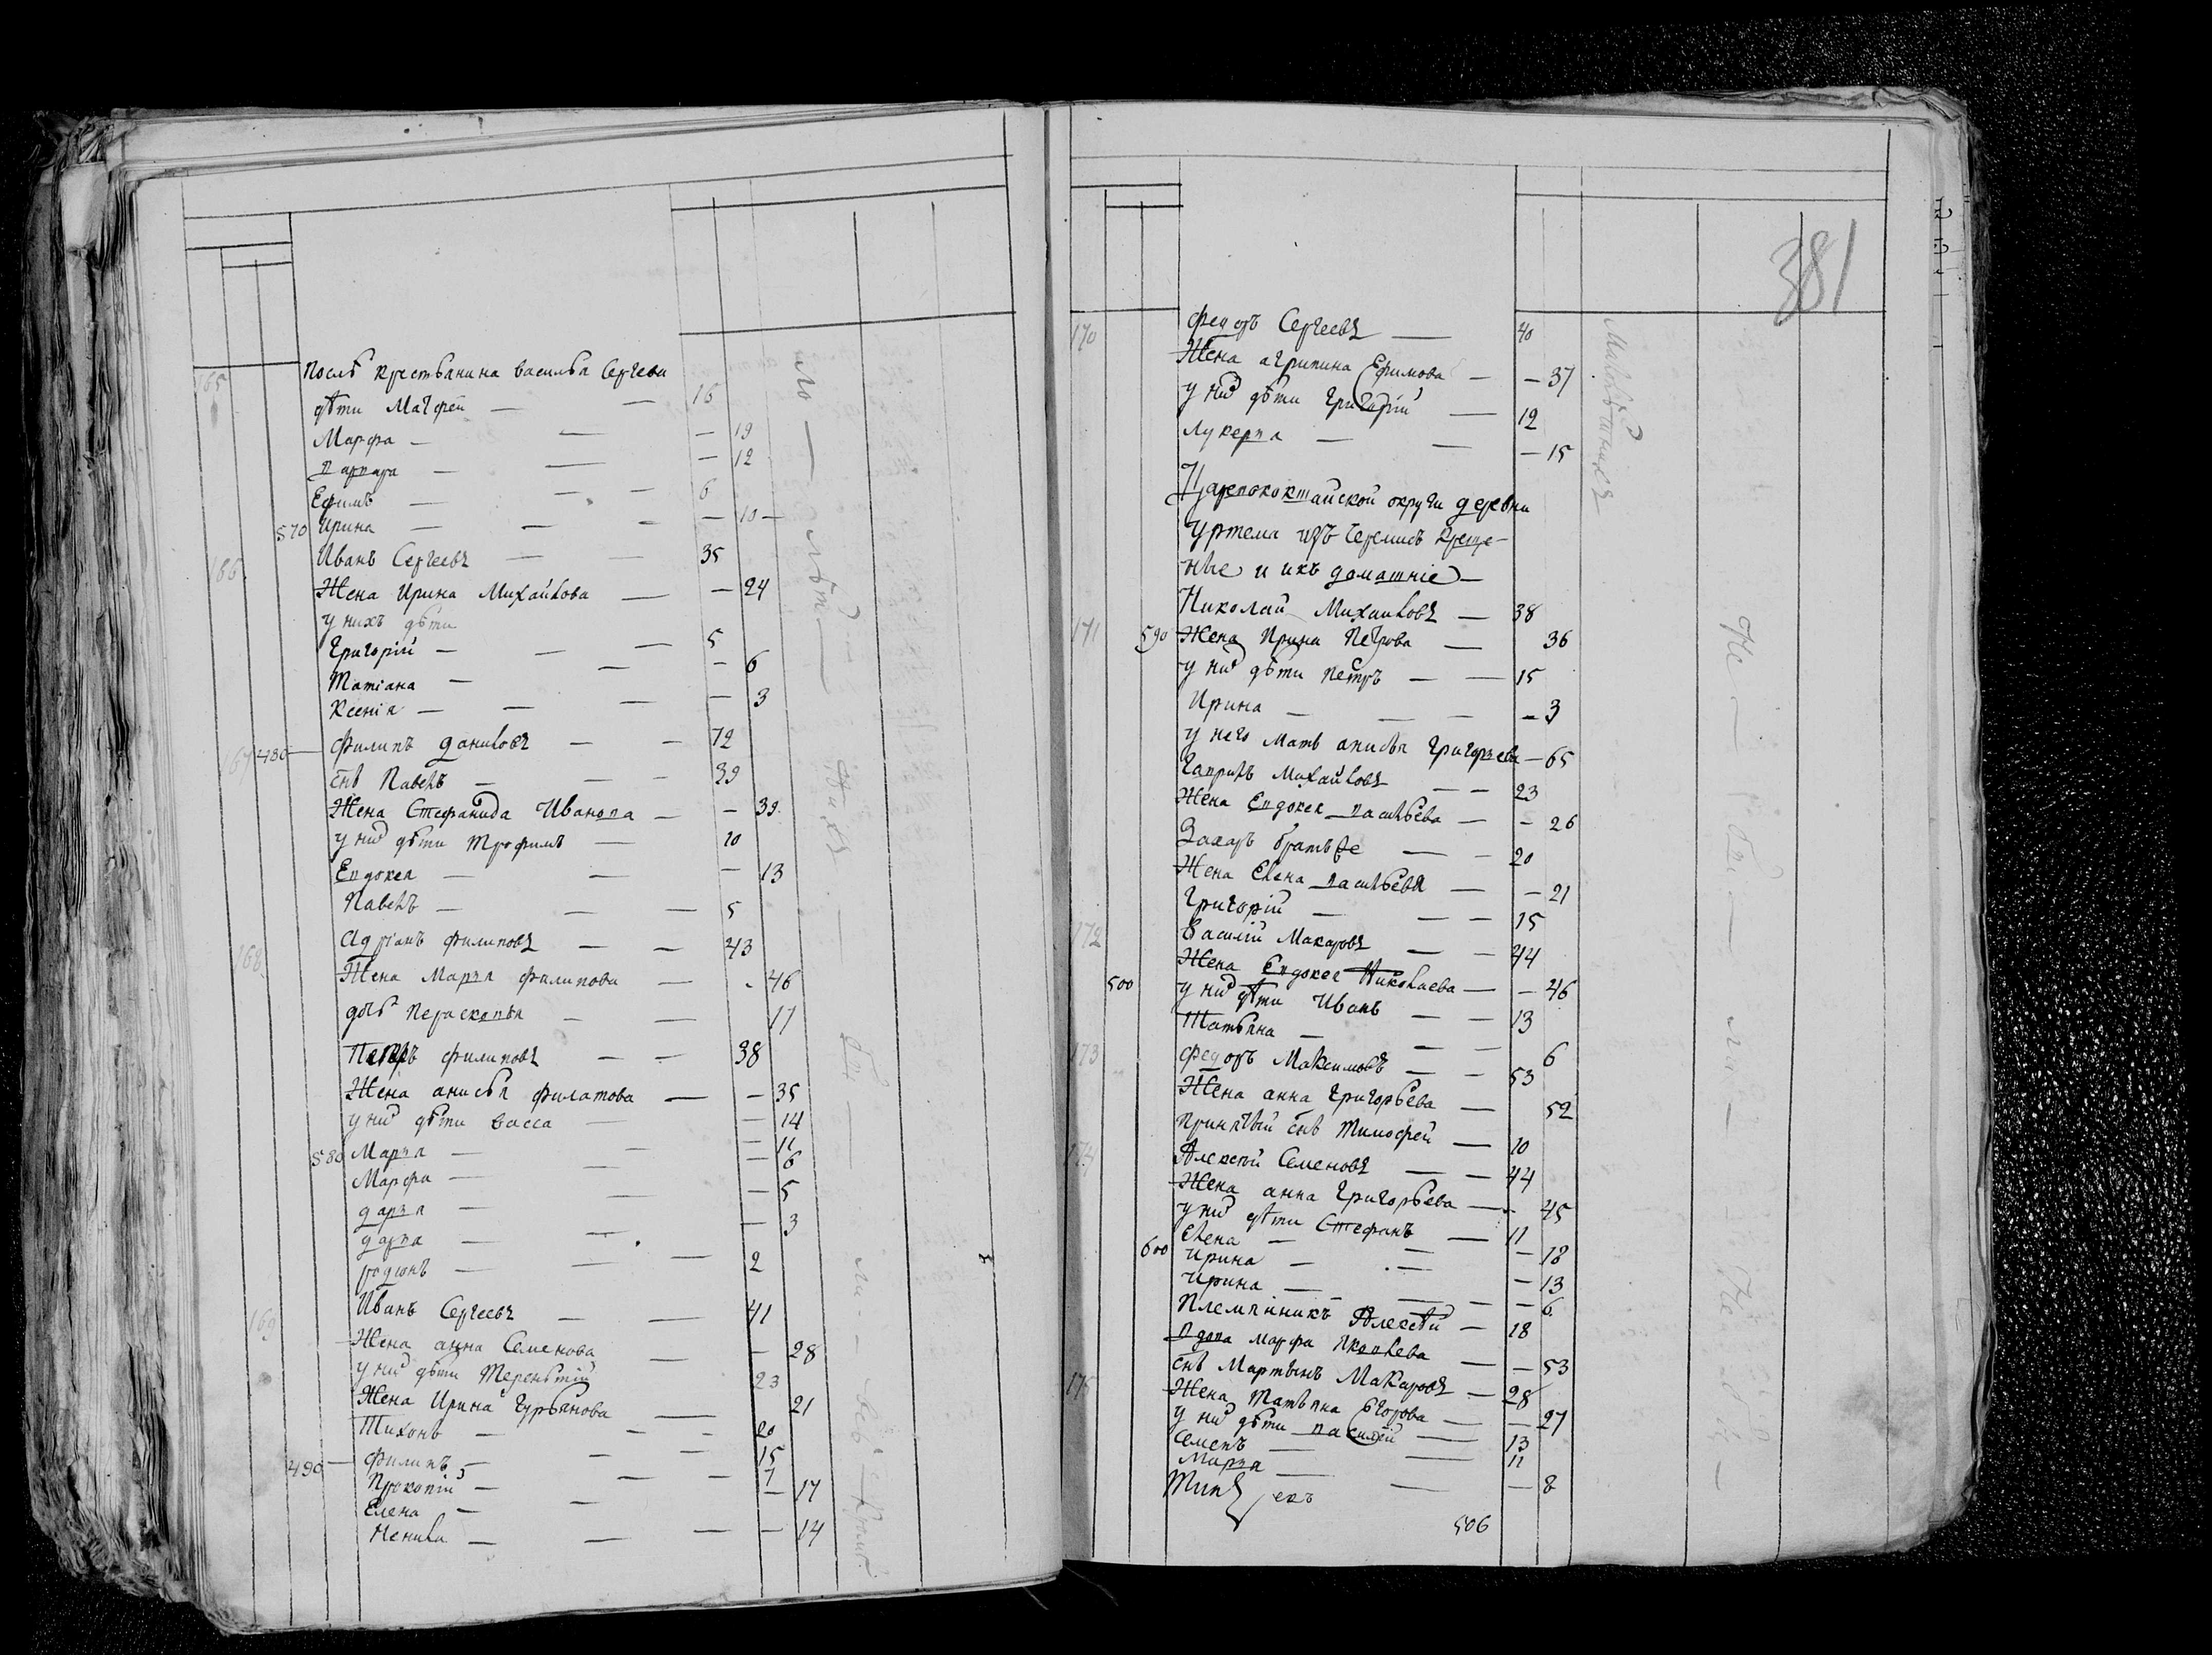 165 послѣ крестьянина василья Сергеева
дѣти Матфей — — 16
Марфа — — — 19
варвара — — — 12
Ефимъ — — — 6
570 Ирина — — — — 10 —
166 Иванъ Сергеевъ — — 35
Жена Ирина Михайлова — — 24
у нихъ дѣти
Григорій — — — 5
Татіана — — — 6
Ксенія — — — — 3
167 480 — филипъ даниловъ — — 72
снъ Павелъ — — — 39
Жена Стефанида Иванова — — 39
у них дѣти трофимъ — 10
Евдокея — — — 13
Павелъ — — — 5
168 Адріанъ филиповъ — — 43
Жена Марья филипова — 46
дочь Пераскопья — — 17
Петръ филиповъ — — 38
Жена анисья филатова — — 35
у них дѣти васса — — 14
580 Марья — — — 11
Марфа — — — 6
дарья — — — 5
дарья — — — 3
родіонъ — — — 2
169 Иванъ Сергеевъ — — 41
Жена анна Семенова — — 28
у них дѣти Терентій 23
Жена Ирина Гурьянова — 21
Тихонъ — — — 20
490 — филипъ — — — 15
Прокопій — — — 7
Елена — — — 17
Ненила — — — — 14
381
170 федоръ Сергеевъ — 40
Жена агрипина Ефимова — — 37
у них дѣти Григорій — 12
Лукерья — — — 15
Царевококшайской округи деревни
Уртема изъ черемисъ креще-
ные и ихъ домашніе —
Николай Михаиловъ — 38
171 590 Жена Ирина Петрова — 36
у них дѣти петръ — — 15
Ирина — — — — 3
у него мать анисья Григорьева — 65
Гаврилъ Михайловъ — — 23
Жена Евдокея васильева — — 26
Захаръ братъ — — 20
Жена Елена васильева — — 21
Григорій — — — 15
172 Василій Макаровъ — — 44
Жена Евдокея Николаева — — 46
500 у них дѣти Иванъ — — 13
Татьяна — — — 6
173 федоръ Максимовъ — — 53
Жена анна Григорьева — 52
Принятый снъ Тимофей — 10
174 Алексѣй Семеновъ — — 44
Жена анна Григорьева — — 45
у них дѣти Стефанъ — 11
Елена — — — 18
600 Ирина — — — 13
Ирина — — — — 6
Племянникъ Алексѣй — 18
вдова Марфа Яковлева — — 53
175 снъ Мартынъ Макаровъ — 28
Жена Татьяна Егорова — — 27
у них дѣти василей — 13
Семенъ — — 11
Марья — — — 8
506